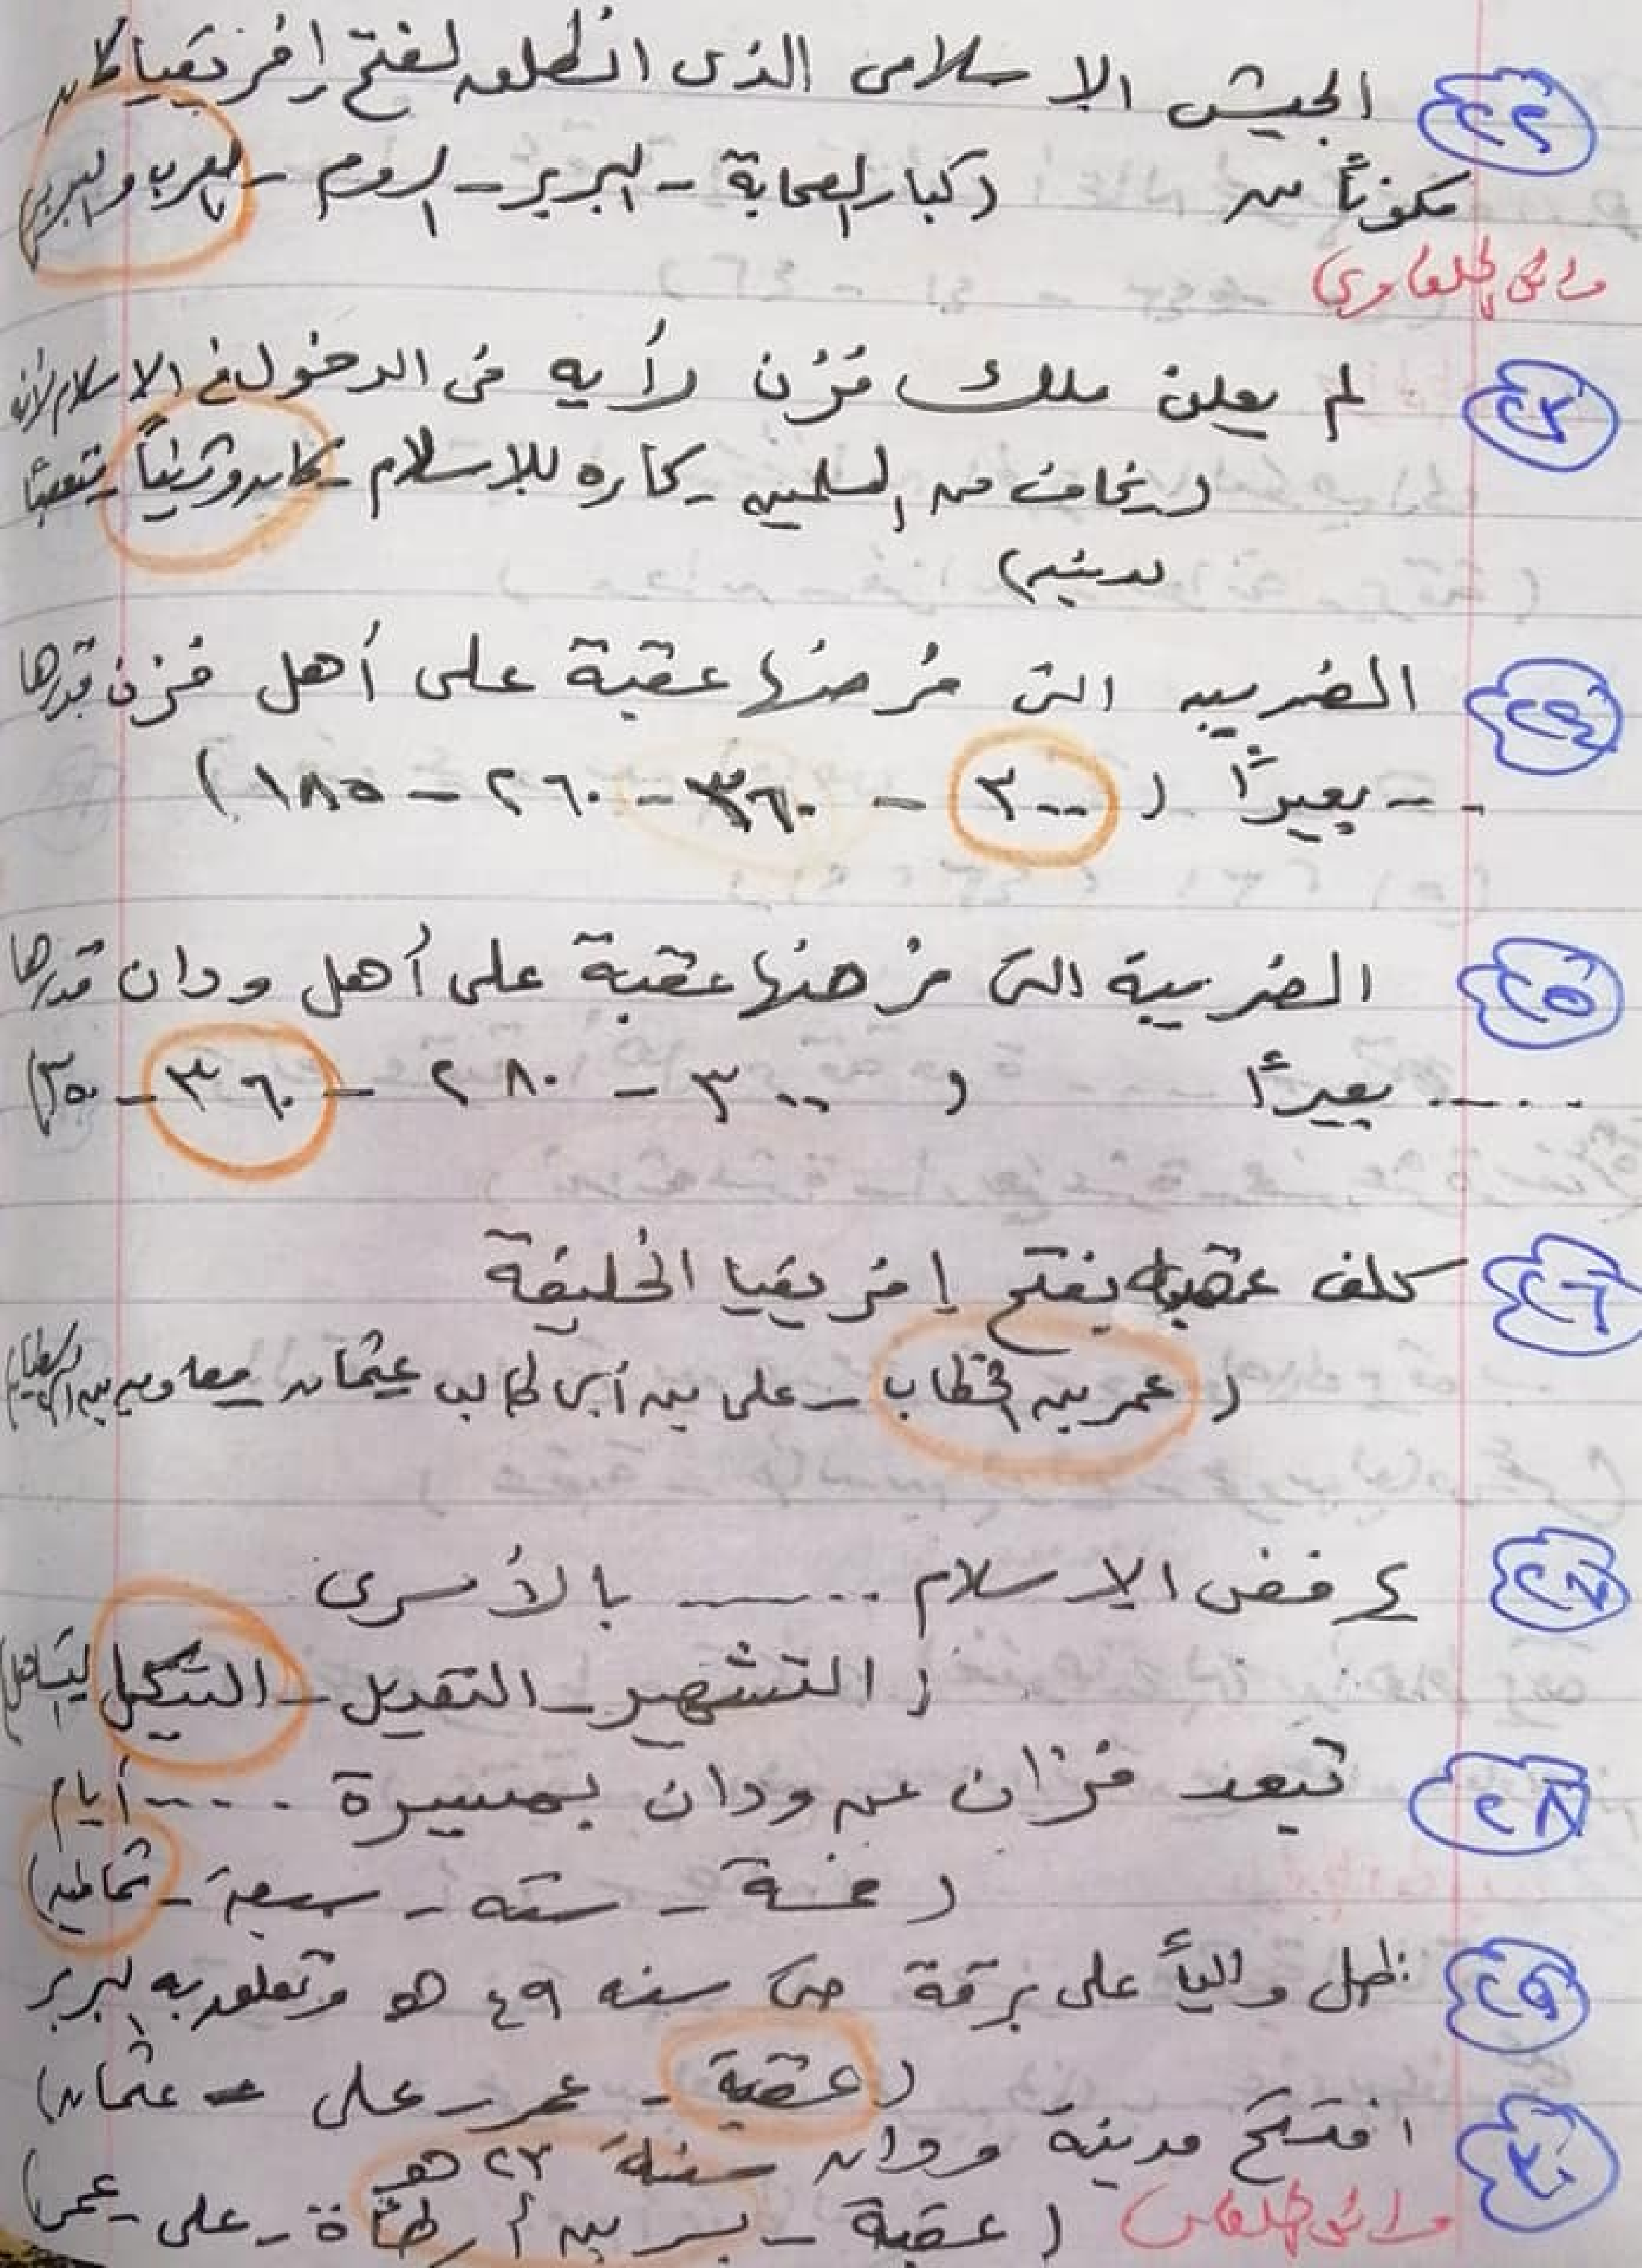 ٢٢ الجيش الإسلامى الذى انطلق لفتح إفريقيا كان
مكوناً من (كبار الصحابة - البربر - الروم - العرب والبربر)
٢٣ لم يعلن ملك فزن رأيه فى الدخول فى الاسلام لأنه
(يخاف من المسلمين - كاره للاسلام - كان وثنياً - متعصباً
لدينه)
٢٤ الضريبه التى فرضها عقبة على أهل فزن قدرها
-- بعيراً (٣٠٠ - ٣٦٠ - ٢٦٠ - ١٨٥)
٢٥ الضريبة التى فرضها عقبة على أهل ودان قدرها
..... بعيراً (٣٠٠ - ٢٨٠ - ٣٦٠ - ٣٥٠)
٢٦ كلف عقبة بفتح إفريقيا الخليفة
(عمر بن الخطاب - على بن أبى طالب عثمان - معاوية بن
٢٧ رفض الإسلام ....... بالأسرى
(التشهير - التقديل - التنكيل
٢٨ تبعد فزان عن ودان بمسيرة .... أيام
(خمسة - سته - سبعة - ثمانية)
٢٩ ظل والياً على برقة حتى سنه ٤٩ هـ وتعلق به البربر
(عقبة - عمر - على - عثمان)
٣٠ افتتح مدينة ودان سنة ٢٣ هـ
(عقبة - بسر بن أرطأة - على - عمر)